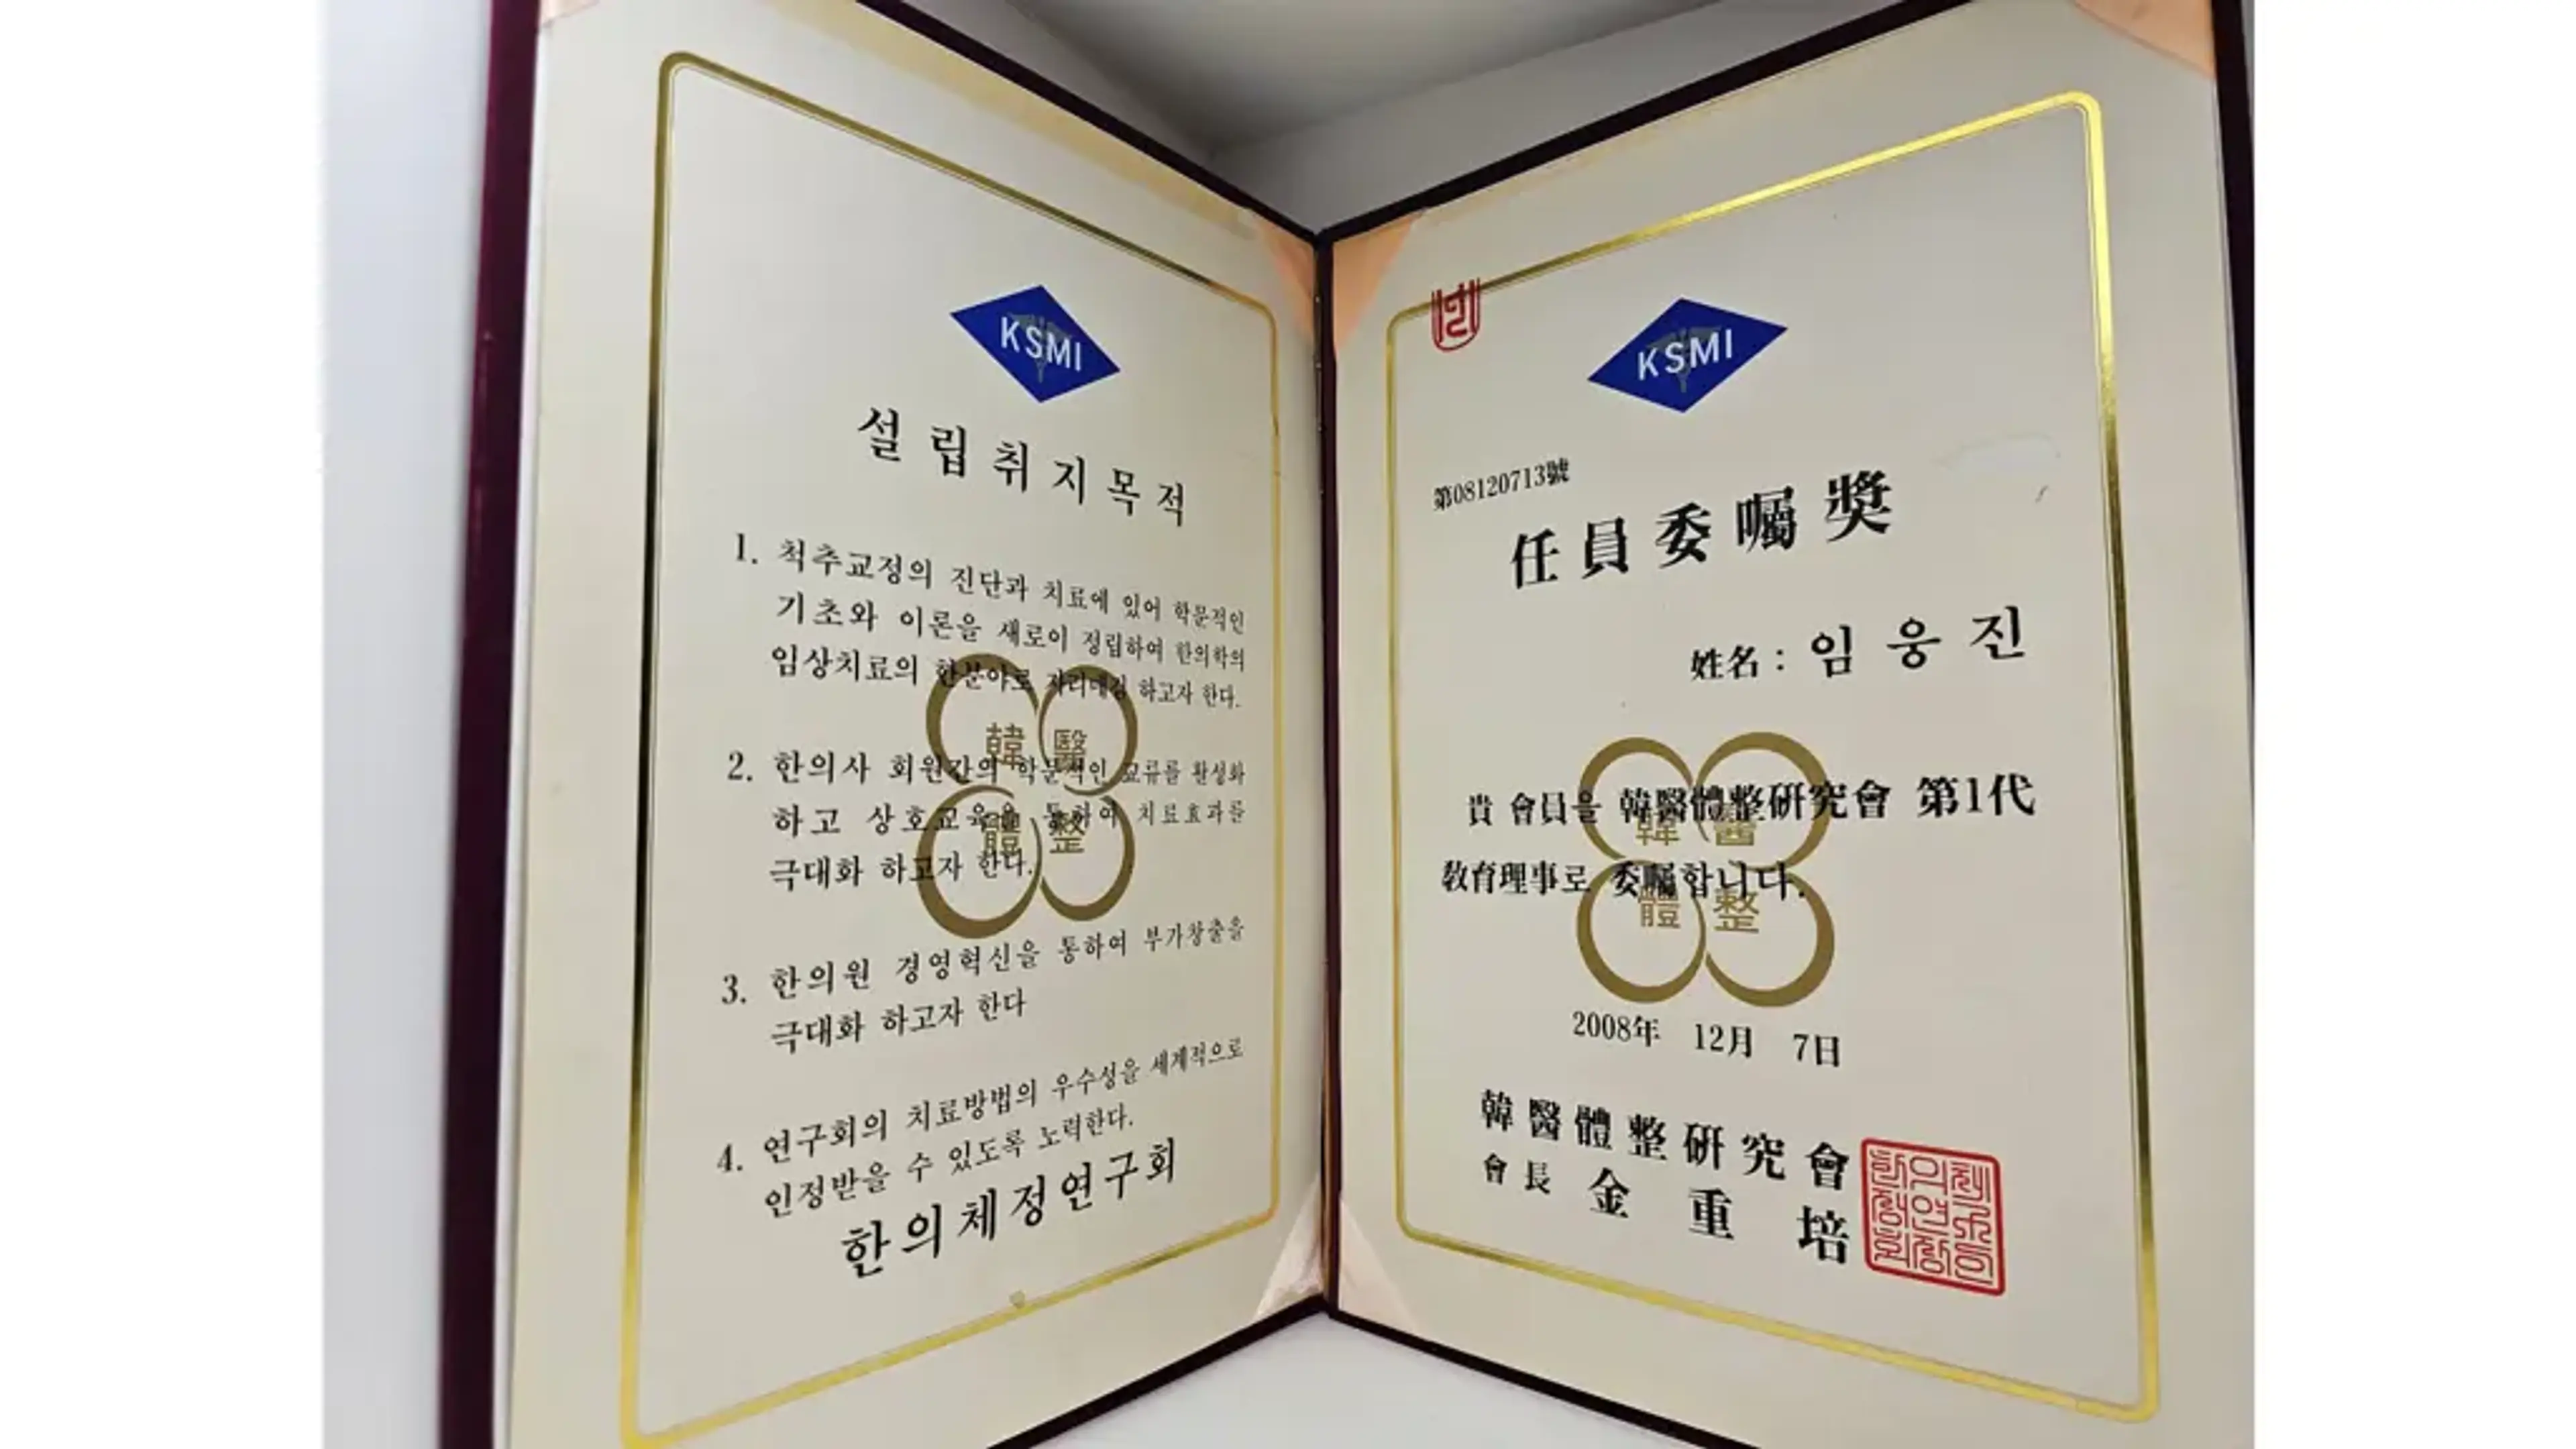 KSMI
설립취지목적
1. 척추교정의 진단과 치료에 있어 학문적인
기초와 이론을 새로이 정립하여 한의학의
임상치료의 한분야로 자리매김 하고자 한다.
2. 한의사 회원간의 학문적인 교류를 활성화
하고 상호교육을 통하여 치료효과를
극대화 하고자 한다.
3. 한의원 경영혁신을 통하여 부가창출을
극대화 하고자 한다
4. 연구회의 치료방법의 우수성을 세계적으로
인정받을 수 있도록 노력한다.
한의체정연구회
韓醫
體整
KSMI
第08120713號
任員委囑獎
姓名 : 임웅진
貴 會員을 韓醫體整硏究會 第1代
敎育理事로 委囑합니다.
韓醫
體整
2008年 12月 7日
韓醫體整硏究會
會長 金重培